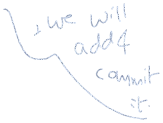 we will
add &
commit
it.